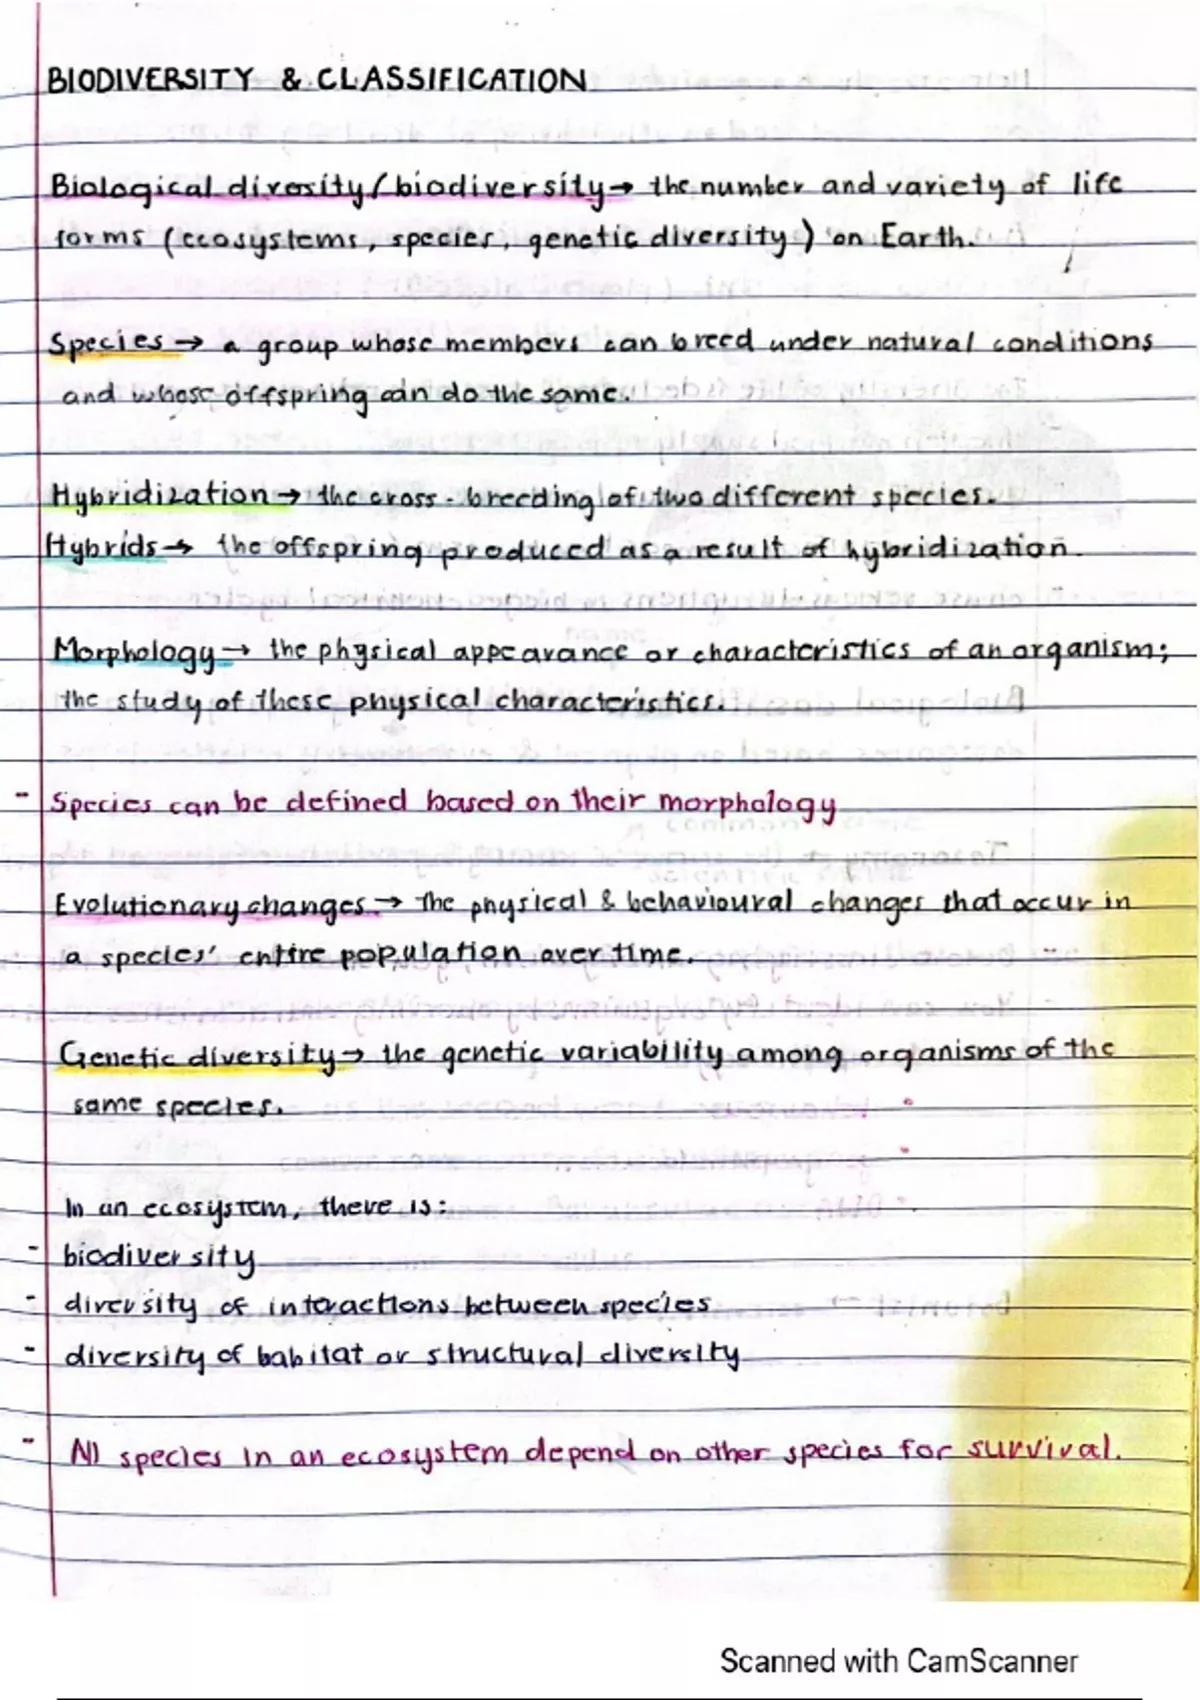 BIODIVERSITY & CLASSIFICATION
Biological diversity/biodiversity → the number and variety of life
forms (ecosystems, species, genetic diversity) on Earth.
Species → a group whose members can breed under natural conditions
and whose offspring can do the same.
Hybridization → the cross-breeding of two different species.
Hybrids → the offspring produced as a result of hybridization.
Morphology → the physical appearance or characteristics of an organism;
the study of these physical characteristics.
- Species can be defined based on their morphology
Evolutionary changes → the physical & behavioural changes that occur in
a species' entire population over time.
Genetic diversity → the genetic variability among organisms of the
same species.
In an ecosystem, there is:
- biodiversity
- diversity of interactions between species
- diversity of habitat or structural diversity
- All species in an ecosystem depend on other species for survival.
Scanned with CamScanner